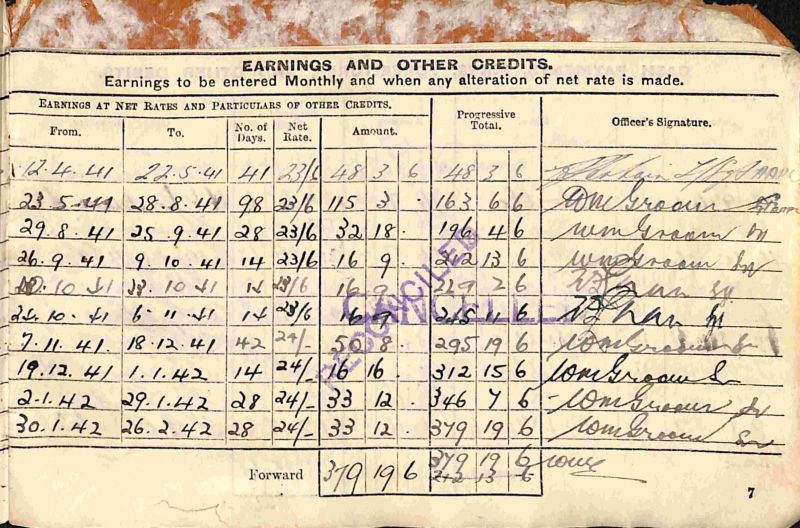 EARNINGS AND OTHER CREDITS.
Earnings to be entered Monthly and when any alteration of net rate is made.
EARNINGS AT NET RATES AND PARTICULARS OF OTHER CREDITS.
Progressive Total.
Officer's Signature.
From. To. No. of Days. Net Rate. Amount.
12.4.41 22.5.41 41 23/6 48 3 6 48 3 6
23.5.41 28.8.41 98 23/6 115 3 . 163 6 6 WmGroom
29.8.41 25.9.41 28 23/6 32 18 . 196 4 6 WmGroom
26.9.41 9.10.41 14 23/6 16 9 . 212 13 6 WmGroom
10.10.41 23.10.41 14 23/6 16 9 . 229 2 6
24.10.41 6.11.41 14 23/6 16 9 . 245 11 6
7.11.41. 18.12.41 42 24/- 50 8 . 295 19 6 WmGroom
19.12.41 1.1.42 14 24/- 16 16 . 312 15 6 WmGroom
2.1.42 29.1.42 28 24/- 33 12 . 346 7 6 WmGroom
30.1.42 26.2.42 28 24/- 33 12 . 379 19 6 WmGroom
RECONCILED
CANCELLED
Forward 379 19 6 379 19 6
212 13 6
7